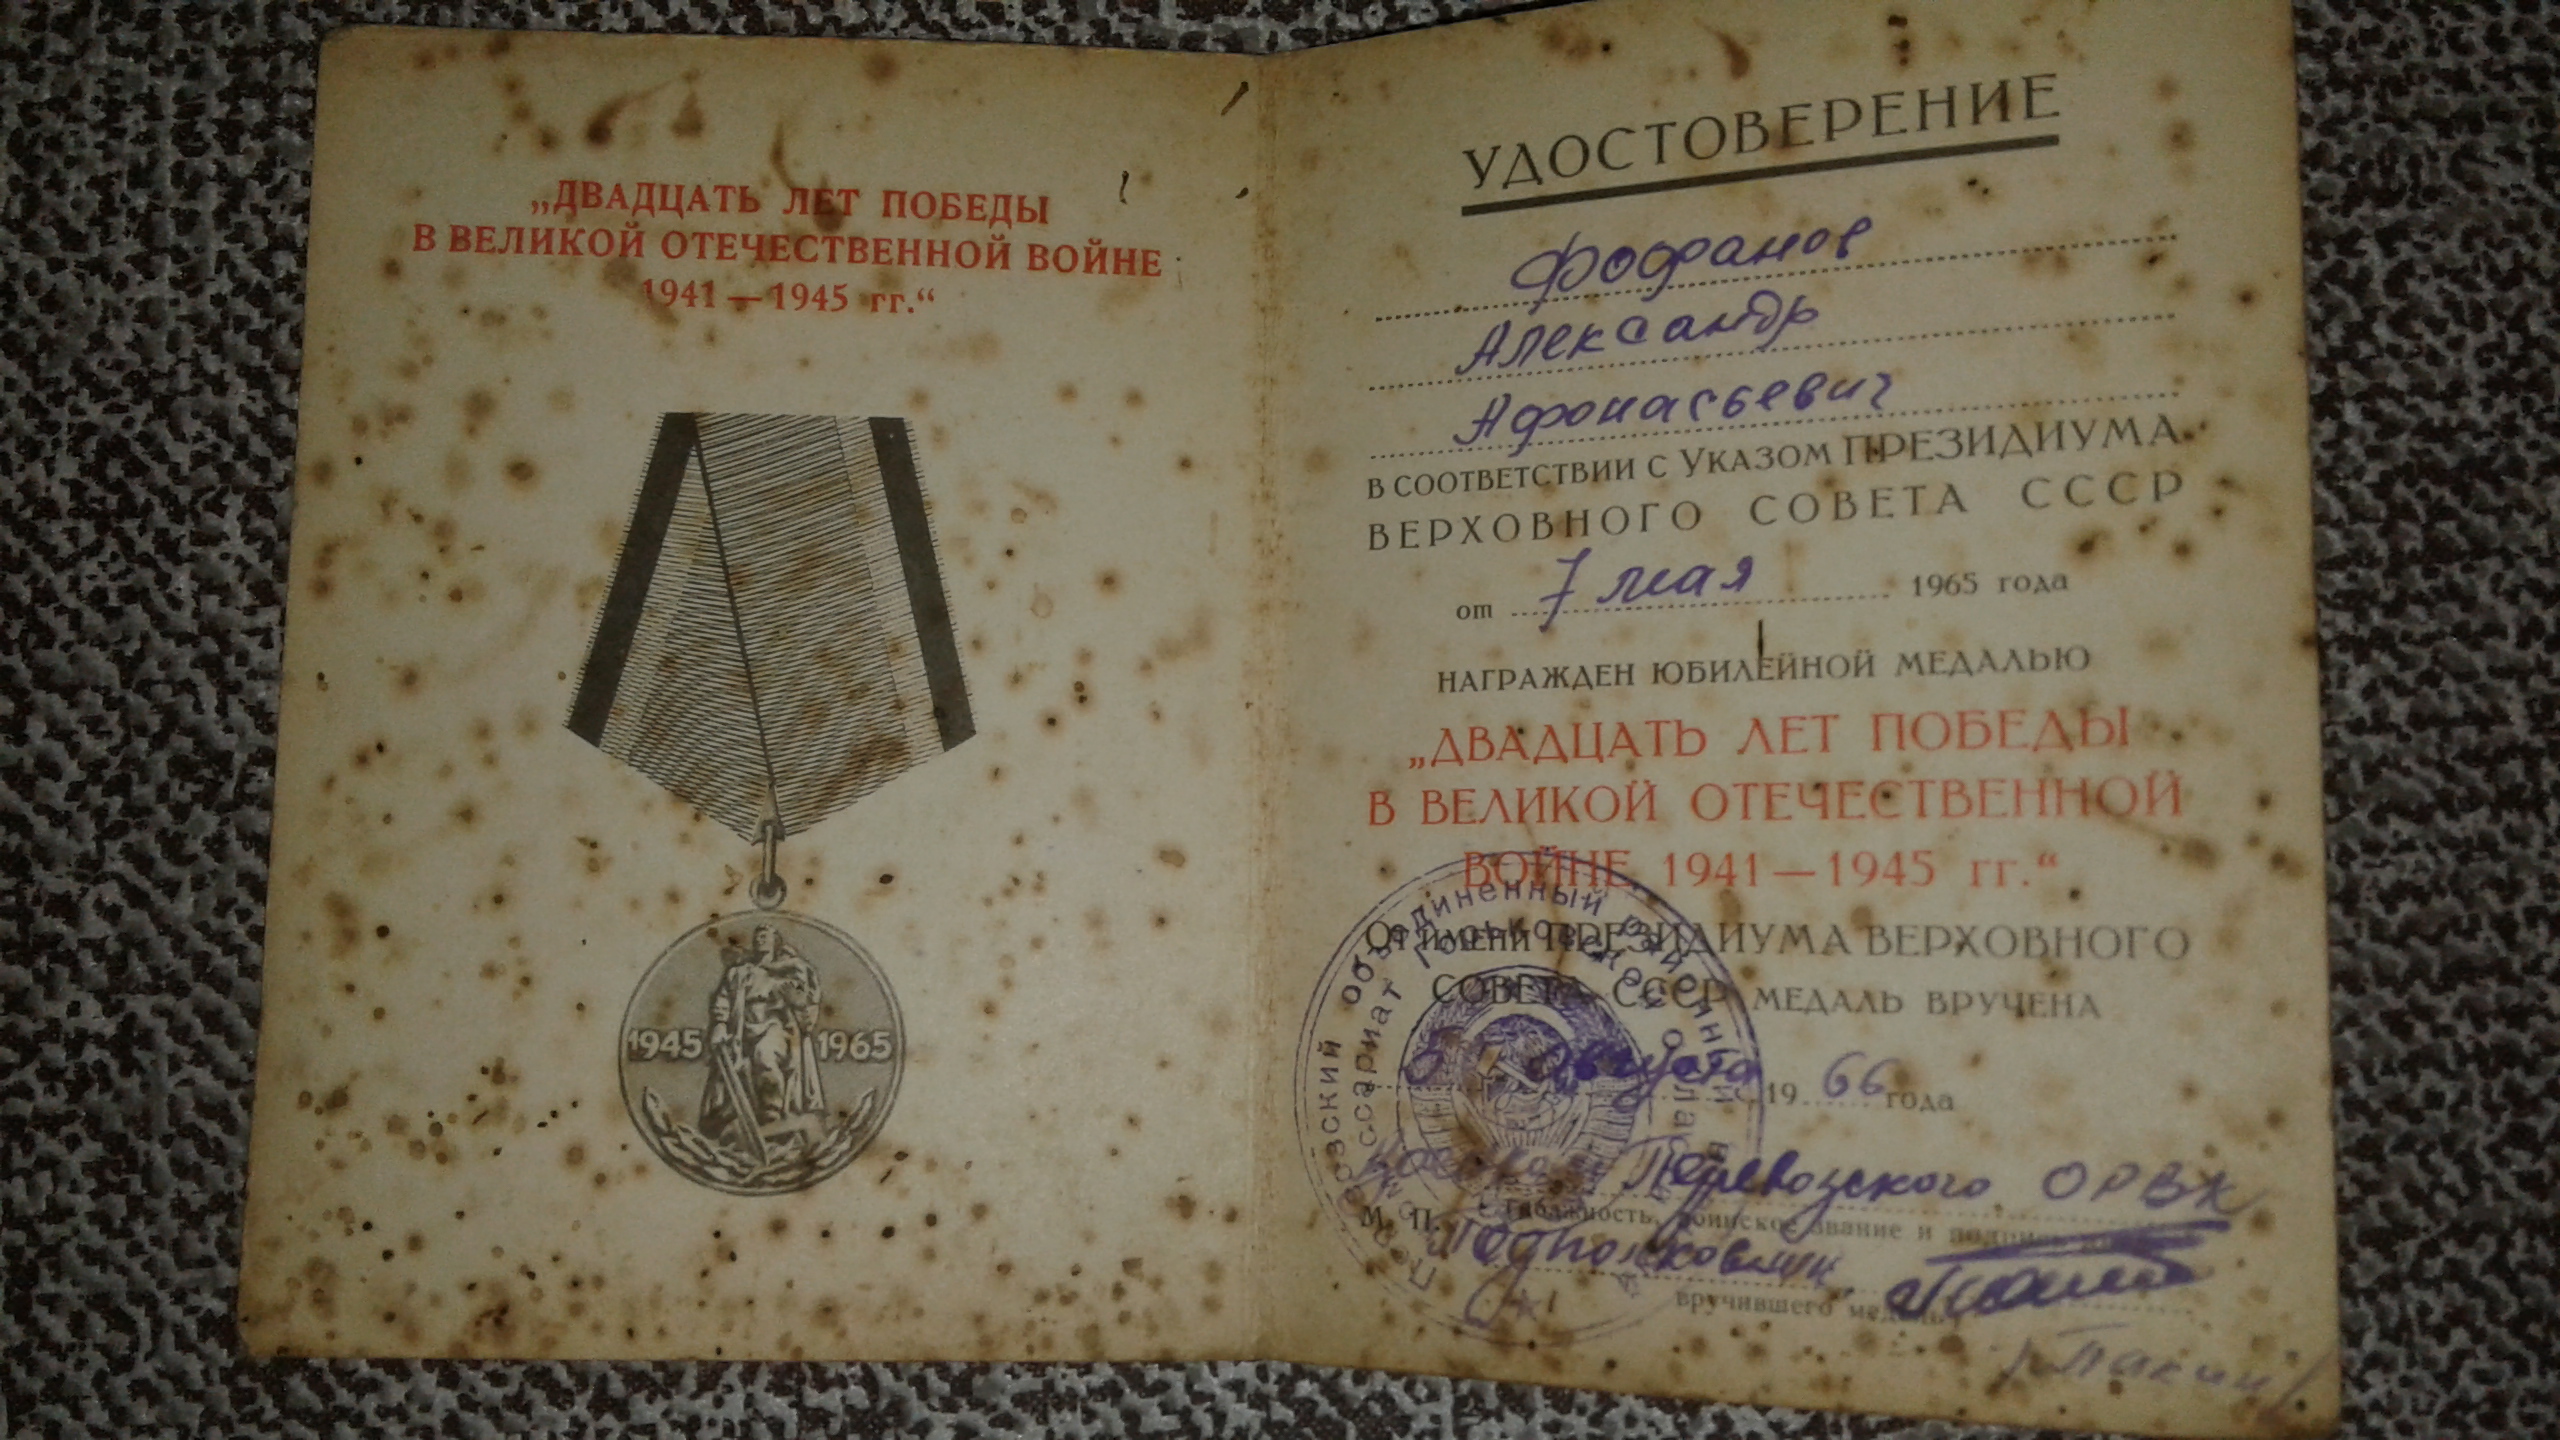 „ДВАДЦАТЬ ЛЕТ ПОБЕДЫ
В ВЕЛИКОЙ ОТЕЧЕСТВЕННОЙ ВОЙНЕ
1941 — 1945 гг.“
1945 1965
УДОСТОВЕРЕНИЕ
Фофанов
Александр
Афонасьевич
В СООТВЕТСТВИИ С УКАЗОМ ПРЕЗИДИУМА
ВЕРХОВНОГО СОВЕТА СССР
от 7 мая 1965 года
НАГРАЖДЕН ЮБИЛЕЙНОЙ МЕДАЛЬЮ
„ДВАДЦАТЬ ЛЕТ ПОБЕДЫ
В ВЕЛИКОЙ ОТЕЧЕСТВЕННОЙ
ВОЙНЕ 1941 — 1945 гг.“
От имени ПРЕЗИДИУМА ВЕРХОВНОГО
СОВЕТА СССР МЕДАЛЬ ВРУЧЕНА
августа 1966 года
Перевозского ОРВК
М. П. должность, воинское звание и подпись
Подполковник
вручившего медаль
объединенный районный
Горьковской